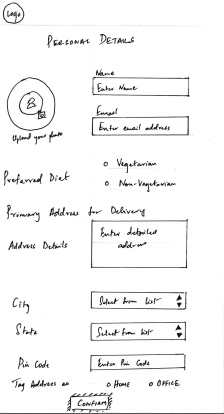 Logo
PERSONAL DETAILS
Name
Enter Name
Email
Enter email address
Upload your photo
Preferred Diet
Vegetarian
Non-Vegetarian
Primary Address for Delivery
Address Details
Enter detailed
address
City
Select from List
State
Select from List
Pin Code
Enter Pin Code
Tag Address as
HOME
OFFICE
CONFIRM